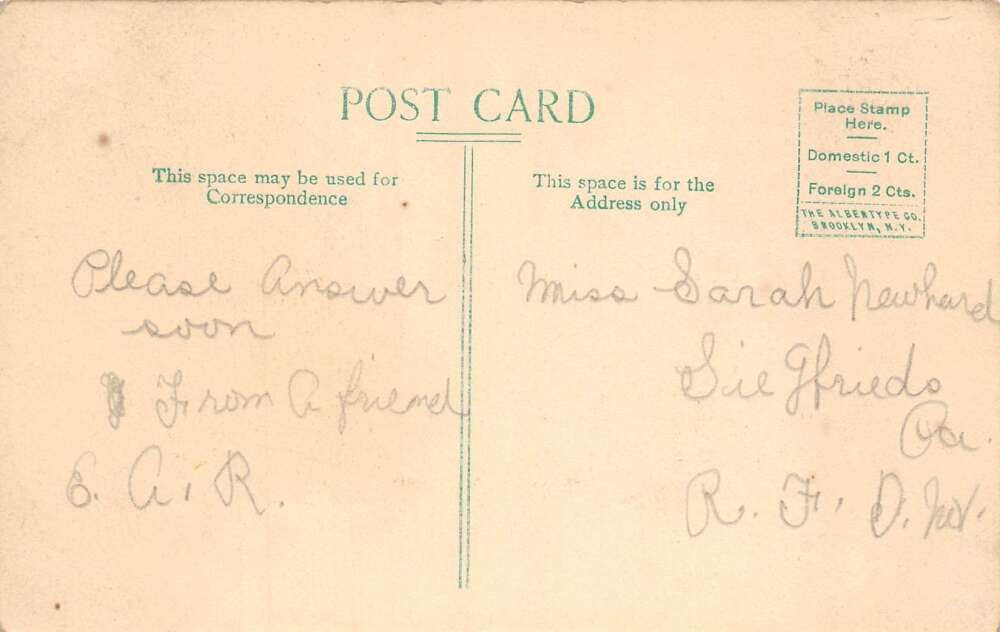 POST CARD
Place Stamp
Here.
Domestic 1 Ct.
Foreign 2 Cts.
THE ALBERTYPE CO.
BROOKLYN, N.Y.
This space may be used for
Correspondence
This space is for the
Address only
Please Answer
soon
From A friend
E. A. R.
Miss Sarah Newhard
Siegfrieds
Pa.
R. F. D.